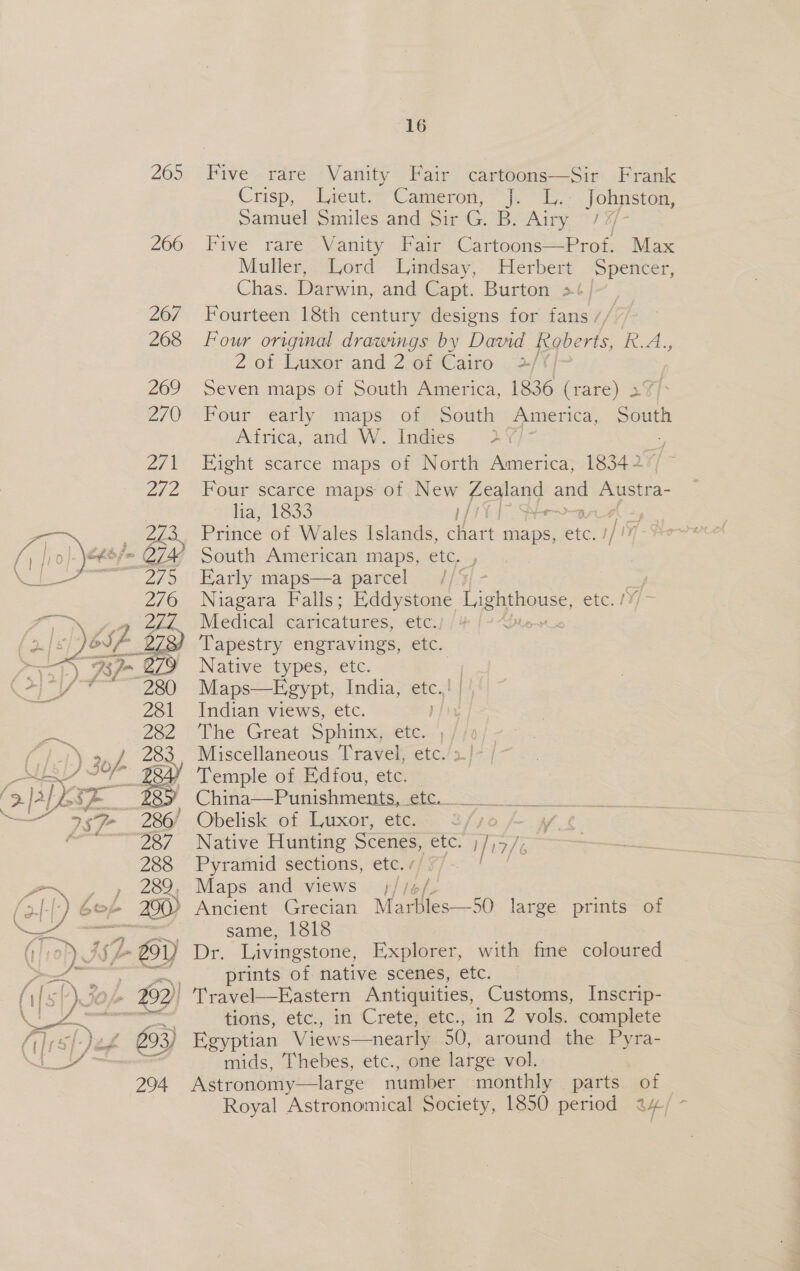 16
265 Five rare Vanity Fair cartoons—Sir Frank
Crisp, Lieut. Cameron, J. L. Johnston,
Samuel Smiles and Sir G. B. Airy
266 Five rare Vanity Fair Cartoons—Prof. Max
Muller, Lord Lindsay, Herbert Spencer,
Chas. Darwin, and Capt. Burton
267 Fourteen 18th century designs for fans
268 Four original drawings by David Roberts, R.A.,
2 of Luxor and 2 of Cairo
269 Seven maps of South America, 1836 (rare)
270 Four early maps of South America, South
Africa, and W. Indies
271 Eight scarce maps of North America, 1834
272 Four scarce maps of New Zealand and Austra-
lia, 1833
273, Prince of Wales Islands, chart maps, etc.
274 South American maps, etc.
275 Early maps—a parcel
276 Niagara Falls; Eddystone Lighthouse, etc.
277 Medical caricatures, etc.
278 Tapestry engravings, etc.
279 Native types, etc.
280 Maps—Egypt, India, etc.
281 Indian views, etc.
282 The Great Sphinx, etc.
283 Miscellaneous Travel, etc.
284 Temple of Edfou, etc.
285 China—Punishments, etc.
286 Obelisk of Luxor, etc.
287 Native Hunting Scenes, etc.
288 Pyramid sections, etc.
289, Maps and views
290 Ancient Grecian Marbles—50 large prints of
same, 1818
291 Dr. Livingstone, Explorer, with fine coloured
prints of native scenes, etc.
292 Travel—Eastern Antiquities, Customs, Inscrip-
tions, etc., in Crete, etc., in 2 vols. complete
293 Egyptian Views—nearly 50, around the Pyra-
mids, Thebes, etc., one large vol.
294 Astronomy—large number monthly parts of
Royal Astronomical Society, 1850 period